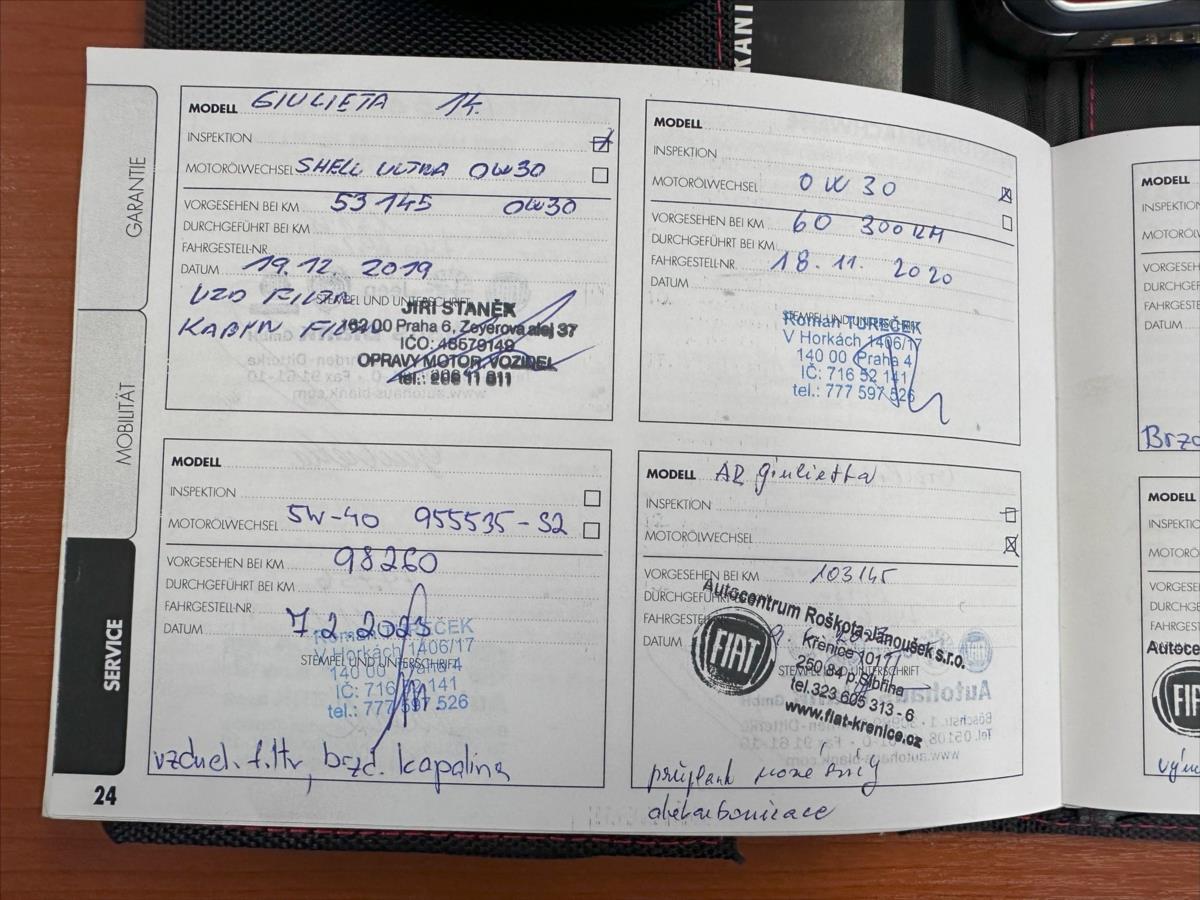 KANT
GARANTIE
MOBILITÄT
SERVICE
24
MODELL GIULIETA 14.
INSPEKTION
MOTORÖLWECHSEL SHELL ULTRA 0W30
VORGESEHEN BEI KM 53 145 0W30
DURCHGEFÜHRT BEI KM
FAHRGESTELL-NR.
DATUM 19.12. 2019
VZD FILTR
STEMPEL UND UNTERSCHRIFT
KABIN FILTR
JIŘI STANĚK
162 00 Praha 6, Zeyerova alej 37
IČO: 46579149
OPRAVY MOTOR. VOZIDEL
MODELL
INSPEKTION
MOTORÖLWECHSEL 0W30
VORGESEHEN BEI KM 60 300 KM
DURCHGEFÜHRT BEI KM
FAHRGESTELL-NR. 18.11. 2020
DATUM
STEMPEL UND UNTERSCHRIFT
Roman TUREČEK
V Horkách 1406/17
140 00 Praha 4
IČ: 716 52 141
tel.: 777 597 526
MODELL
INSPEKTION
MOTORÖLWECHSEL 5W-40 955535-S2
VORGESEHEN BEI KM 98260
DURCHGEFÜHRT BEI KM
FAHRGESTELL-NR.
DATUM 7.2.2023
Roman TUREČEK
V Horkách 1406/17
STEMPEL UND UNTERSCHRIFT
140 00 Praha 4
IČ: 716 52 141
tel.: 777 597 526
vzduch. filtr, brzd. kapalina
MODELL AR Giulietta
INSPEKTION
MOTORÖLWECHSEL
VORGESEHEN BEI KM 103145
DURCHGEFÜHRT BEI KM
FAHRGESTELL-NR.
DATUM
STEMPEL UND UNTERSCHRIFT
FIAT
Autocentrum Roškota-Janoušek s.r.o.
Křenice 101
250 84 p.Sibřina
tel.323 605 313 - 6
www.fiat-krenice.cz
dekarbonizace
MODELL
INSPEKTION
MOTORÖ
VORGESEHE
DURCHGEF
FAHRGESTE
DATUM
Brzd
MODELL
INSPEKTIO
MOTORÖ
VORGESE
DURCHGE
FAHRGEST
DATUM
Autoce